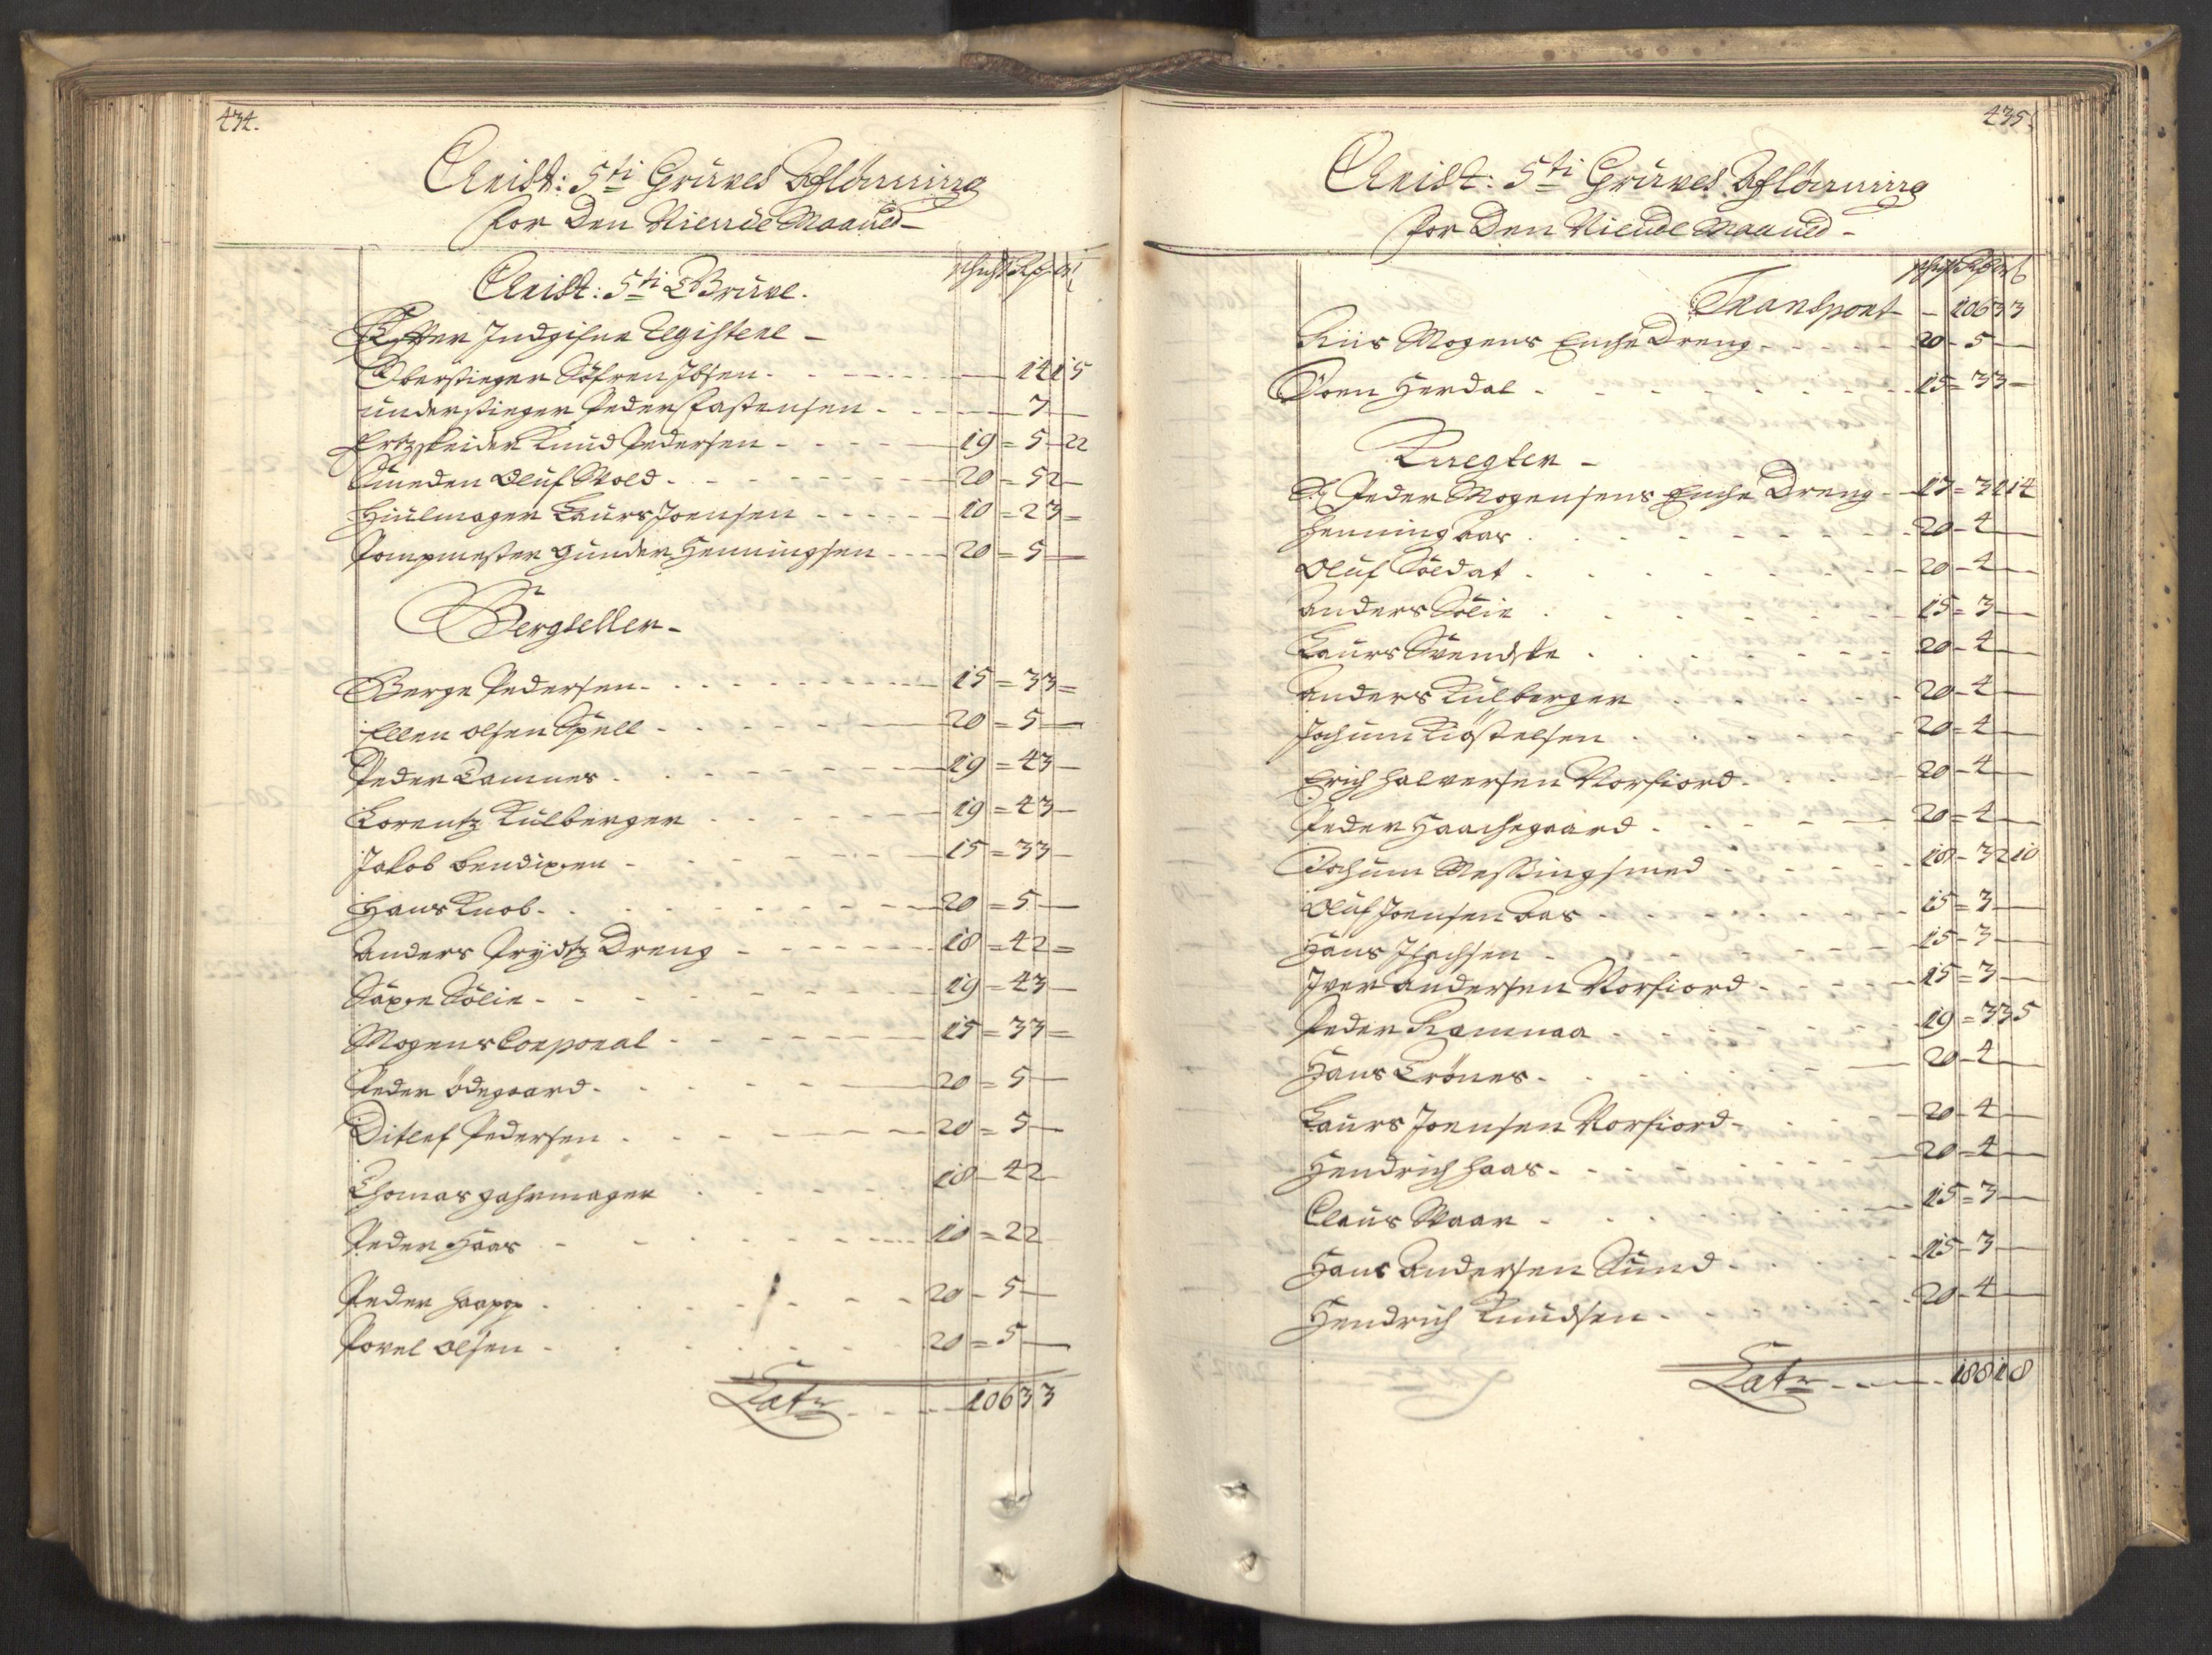 434.
Christ: 5ti Gruves Afløning
for Den Niende Maaned
Christ: 5ti Gruve.
Schicht Rdr ort s
Efter Indgifne Registere
Oberstieger Søfren Ibsen 14 1 5
understieger Peder Castensen 7
Ertzskeider Knud Pedersen 19 = 5 - 22
Smeden Oluf Wold 20 = 5 2
Hiulmager Laurs Joensen 10 = 2 3
Pompmester Gunder Henningsen 20 = 5
Bergseller
Berge Pedersen 15 = 3 3
Ellen Olsen Spell 20 = 5
Peder Damnes 19 = 4 3
Lorentz Kulberger 19 = 4 3
Jakob Bendixen 15 = 3 3
Hans Knob 20 = 5
Anders Prydtz Dreng 18 = 4 2
Saxe Sølie 19 = 4 3
Mogens Corporal 15 = 3 3
Peder Ødegaard 20 = 5
Ditlef Pedersen 20 = 5
Thomas Gahrmager 18 - 4 2
Peder Haas 10 = 2 2
Peder Haagg 20 - 5
Povel Olsen 20 = 5
Lats 106 3 3
435
Christ: 5ti Gruves Afløning
for Den Niende Maaned
Schicht Rdr ort s
Transport 106 3 3
Riis Mogens Enche Dreng 20 - 5
Joen Herdal 15 = 3 3
Knegter
Sl Peder Mogensens Enche Dreng 17 = 3 1 14
Henning Aas 20 - 4
Oluf Soldat 20 - 4
Anders Sølie 15 = 3
Laurs Svendske 20 - 4
Anders Kulberger 20 - 4
Jochum Kiøstelsen 20 = 4
Erich Halversen Norfiord 20 - 4
Peder Haachegaard 20 = 4
Jochum Messingsmed 18 - 3 2 10
Oluf Joensen Aas 15 = 3
Hans Isachsen 15 - 3
Iver Andersen Norfiord 15 = 3
Peder Ramnaa 19 = 3 3 5
Hans Trønes 20 - 4
Laurs Joensen Norfiord 20 - 4
Hendrich Haas 20 = 4
Claus Skaar 15 = 3
Hans Andersen Sund 15 - 3
Hendrich Knudsen 20 - 4
Lats 188 1 8